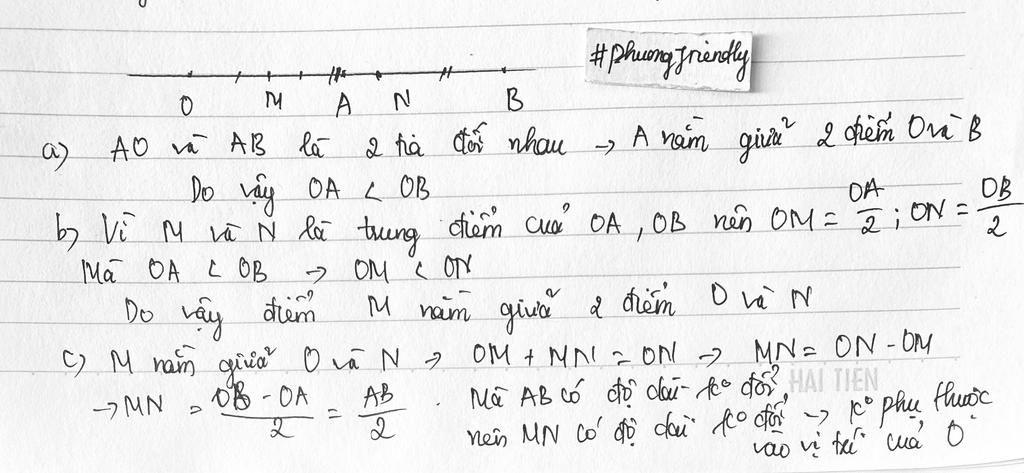 #phuongfriendly
O M A N B
a) AO và AB là 2 tia đối nhau → A nằm giữa 2 điểm O và B
Do vậy OA < OB
b) Vì M và N là trung điểm của OA, OB nên OM = OA/2 ; ON = OB/2
Mà OA < OB → OM < ON
Do vậy điểm M nằm giữa 2 điểm O và N
c) M nằm giữa O và N → OM + MN = ON → MN = ON - OM
→ MN = OB - OA/2 = AB/2 . Mà AB có độ dài k° đổi
nên MN có độ dài k° đổi → k° phụ thuộc
vào vị trí của O
HAI TIEN